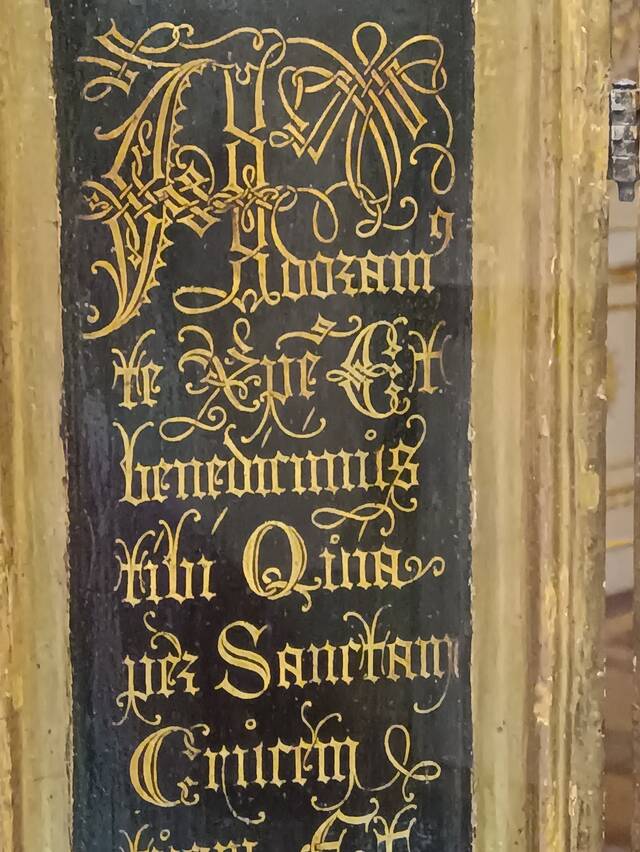 Adoram9
te Xpē Et
benedicimus
tibi Qina
per Sanctam
Crucem
tuam Et